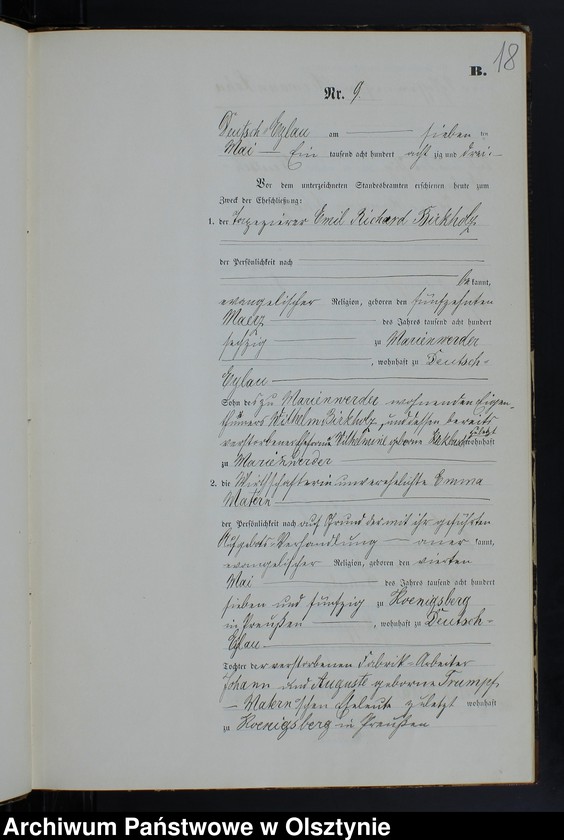 B. 18
Nr. 9.
Deutsch-Eylau am sieben ten
Mai Ein tausend acht hundert acht zig und drei
Vor dem unterzeichneten Standesbeamten erschienen heute zum
Zweck der Eheschließung:
1. der Tapezierer Emil Richard Birkholz
der Persönlichkeit nach
be kannt,
evangelischer Religion, geboren den fünfzehnten
Maerz des Jahres tausend acht hundert
sechzig zu Marienwerder
, wohnhaft zu Deutsch-
Eylau
Sohn des zu Marienwerder wohnenden Eigen-
thümers Wilhelm Birkholz, und dessen bereits
verstorbener Ehefrau Wilhelmine geborne zuletzt wohnhaft
zu Marienwerder
2. die Wirthschafterin unverehelichte Emma
Matern
der Persönlichkeit nach auf Grund der mit ihr geführten
Aufgebots-Verhandlung aner kannt,
evangelischer Religion, geboren den vierten
Mai des Jahres tausend acht hundert
sieben und fünfzig zu Koenigsberg
in Preußen , wohnhaft zu Deutsch-
Eylau
Tochter der verstorbenen Fabrik-Arbeiter
Johann und Auguste geborene Trumpf
- Matern'schen Eheleute zuletzt wohnhaft
zu Koenigsberg in Preußen
Archiwum Państwowe w Olsztynie